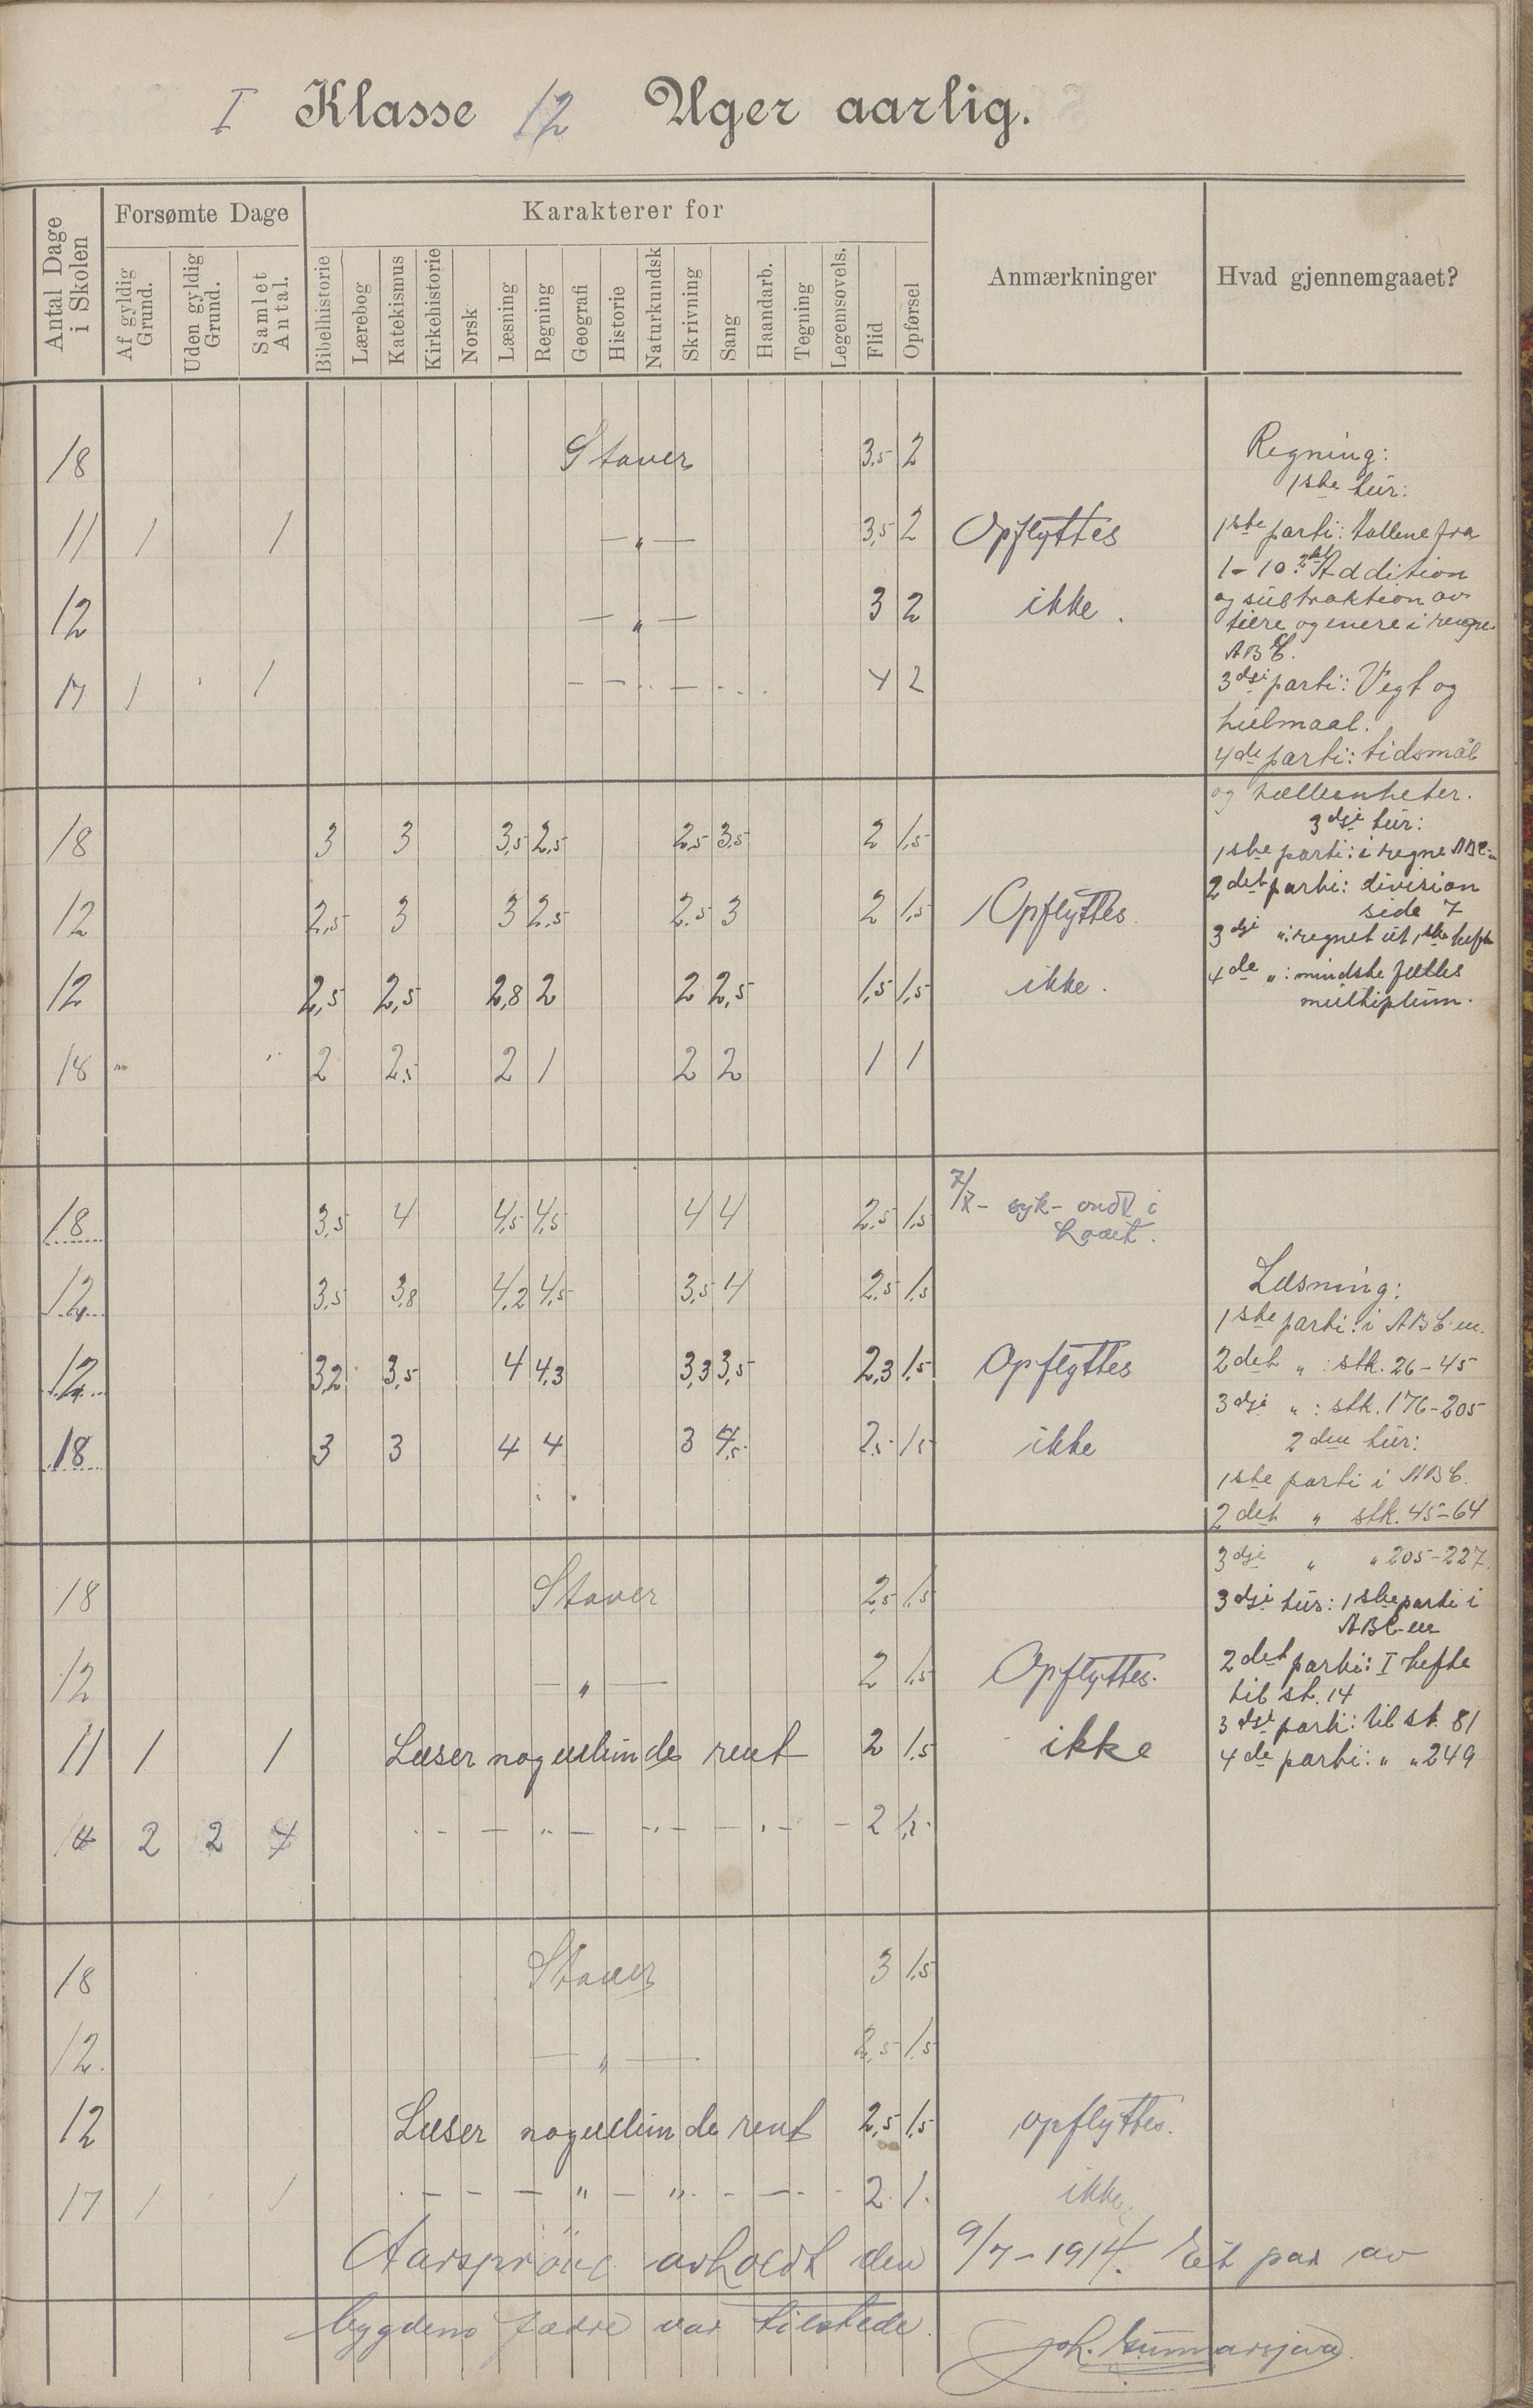 I Klasse 12 Uger aarlig.
Antal Dage i Skolen
Forsømte Dage
Af gyldig Grund.
Uden gyldig Grund.
Samlet Antal.
Karakterer for
Bibelhistorie
Lærebog
Katekismus
Kirkehistorie
Norsk
Læsning
Regning
Geografi
Historie
Naturkundsk
Skrivning
Sang
Haandarb.
Tegning
Legemsøvels.
Flid
Opførsel
Anmærkninger
Hvad gjennemgaaet?
18 Staver 3,5 2
11 1 1 — „ — 3,5 2 Opflyttes
12 — „ — 3 2 ikke.
17 1 1 4 2
Regning:
1ste tur:
1ste parti: tallene fra
1-10. 2det Addition
og subtraktion av
tiere og enere i regne
ABC.
3dje parti: Vegt og
hulmaal.
4de parti: tidsmål
og tælleenheter.
3dje tur:
1ste parti: i regne ABC-n
2det parti: division
side 7
3dje „: regnet ut 1ste hefte
4de „: mindste fælles
multiplum.
18 3 3 3,5 2,5 2,5 3,5 2 1,5
12 2,5 3 3 2,5 2,5 3 2 1,5 Opflyttes.
12 2,5 2,5 2,8 2 2 2,5 1,5 1,5 ikke.
18 „ „ 2 2,5 2 1 2 2 1 1
18 3,5 4 4,5 4,5 4 4 2,5 1,5 syk - ondt i
12 3,5 3,8 4,2 4,5 3,5 4 2,5 1,5
12 3,2 3,5 4 4,3 3,3 3,5 2,3 1,5 Opflyttes
18 3 3 4 4 3 4,5 2,5 1,5 ikke
Læsning:
1ste parti: i ABC-en.
2det „ : stk. 26-45
3dje „ : stk. 176-205
2den tur:
1ste parti i ABC.
2det „ stk. 45-64
3dje „ „ 205-227.
3dje tur: 1ste parti i
ABC-en
2det parti: I hefte
til st. 14
3dje parti: til st. 81
4de parti: „ „ 249
18 Staver 2,5 1,5
12 — „ — 2 1,5 Opflyttes.
11 1 1 Læser nogenlunde rent 2 1,5 ikke
14 2 2 4 2
18 Staver 3 1,5
12. — „ — 2,5 1,5
12 Læser nogenlunde rent 2,5 1,5 opflyttes.
17 1 1 — „ — „ — 2. 1. ikke.
Aarsprøve avholdt den 9/7-1914. Et par av
bygdens fædre var tilstede.
Joh. Gunnarsjaa